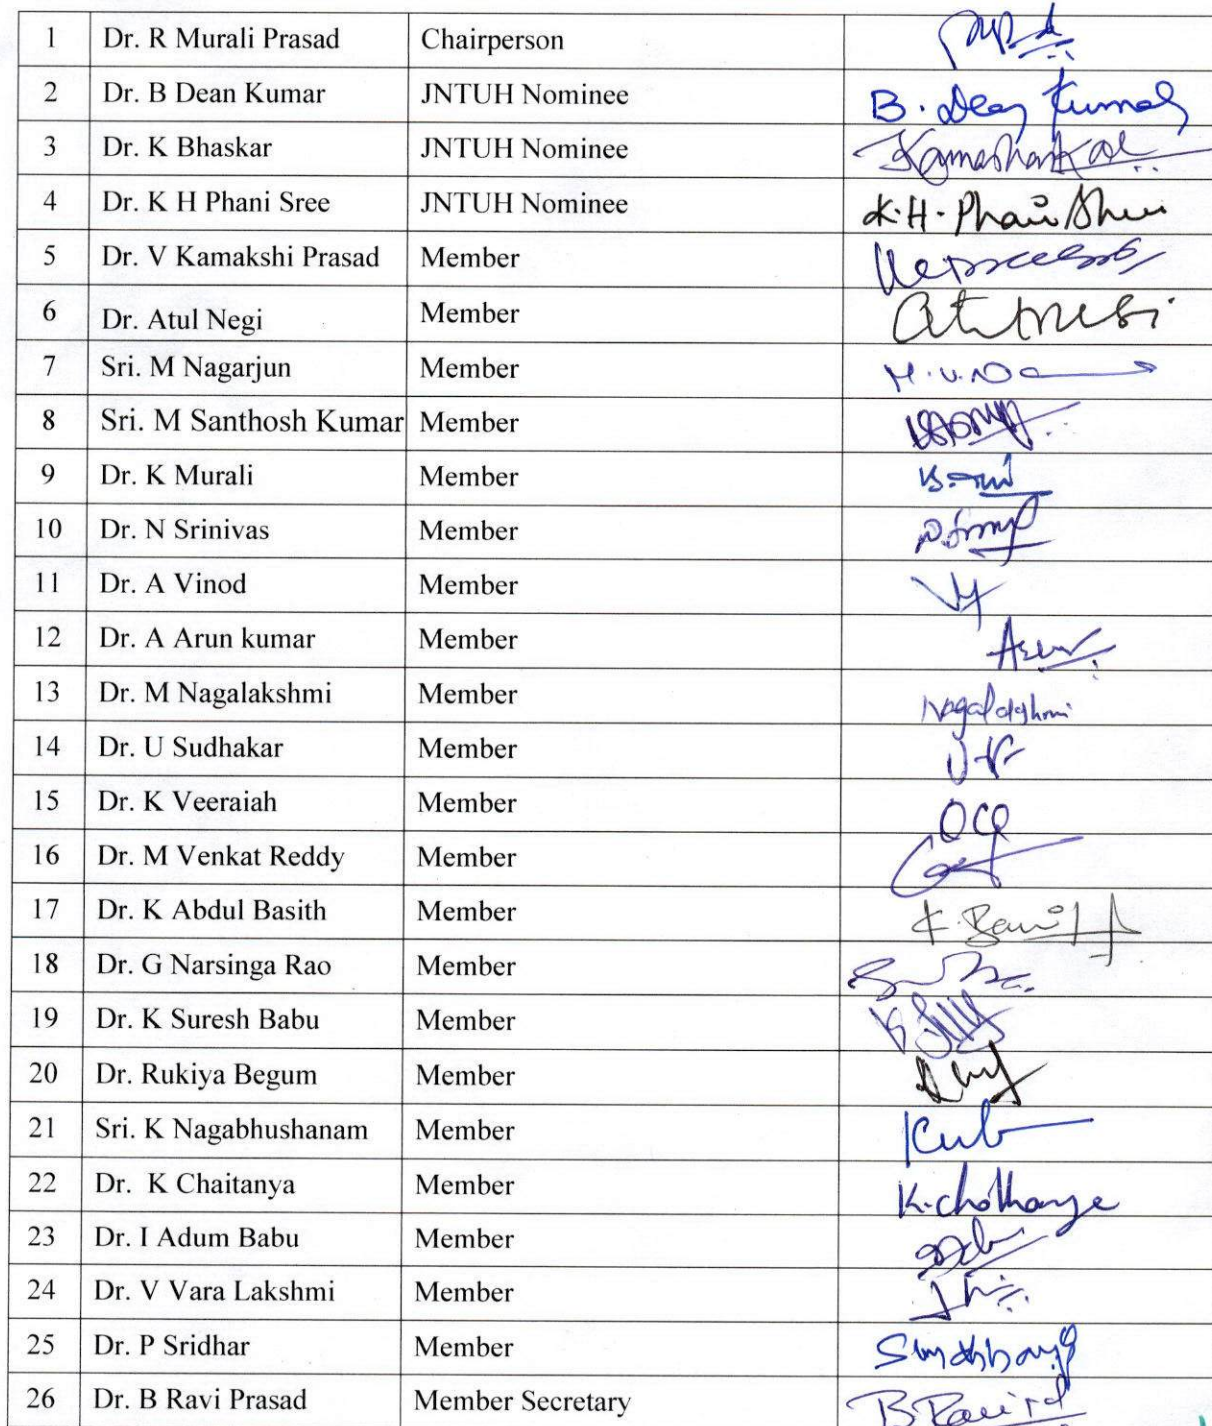 1 Dr. R Murali Prasad Chairperson
2 Dr. B Dean Kumar JNTUH Nominee B. Dean Kumar
3 Dr. K Bhaskar JNTUH Nominee
4 Dr. K H Phani Sree JNTUH Nominee K.H. Phani Shree
5 Dr. V Kamakshi Prasad Member
6 Dr. Atul Negi Member Atul Negi
7 Sri. M Nagarjun Member
8 Sri. M Santhosh Kumar Member
9 Dr. K Murali Member
10 Dr. N Srinivas Member
11 Dr. A Vinod Member
12 Dr. A Arun kumar Member Arun
13 Dr. M Nagalakshmi Member
14 Dr. U Sudhakar Member
15 Dr. K Veeraiah Member
16 Dr. M Venkat Reddy Member
17 Dr. K Abdul Basith Member
18 Dr. G Narsinga Rao Member
19 Dr. K Suresh Babu Member
20 Dr. Rukiya Begum Member
21 Sri. K Nagabhushanam Member
22 Dr. K Chaitanya Member
23 Dr. I Adum Babu Member
24 Dr. V Vara Lakshmi Member
25 Dr. P Sridhar Member
26 Dr. B Ravi Prasad Member Secretary